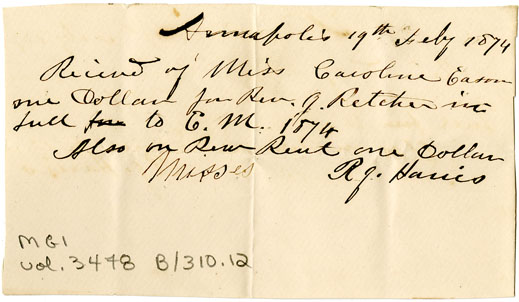 Annapolis 19th Feby 1874
Recievd of Miss Caroline Eason
one Dollar for Rev. J Retcher in
full to E. M. 1874
Also on Pew Rent one Dollar
Misses R J. Harris
MG1
vol. 3478 B/310.12